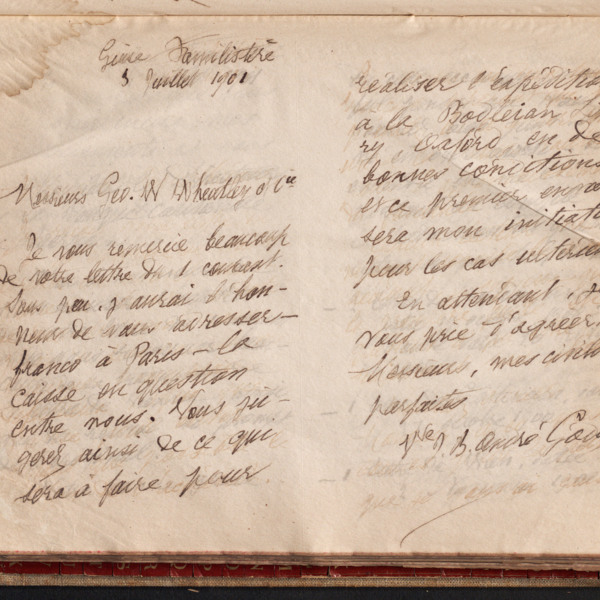 Guise Familistère
3 Juillet 1901
Messieurs Geo. W Wheatley & Cie
Je vous remercie beaucoup
de votre lettre du 1 courant.
Sous peu, j'aurai l'hon-
neur de vous adresser -
franco à Paris - la
caisse en question
entre nous. Vous ju-
gerez ainsi de ce qui
sera à faire pour
réaliser l'expédition
à la Bodleian
ry, Oxford en de
bonnes conditions
et ce premier envoi
sera mon initiat
pour les cas ultérieu
En attendant, je
vous prie d'agréer,
Messieurs, mes civilit
parfaites
Vve J. B. André Godin